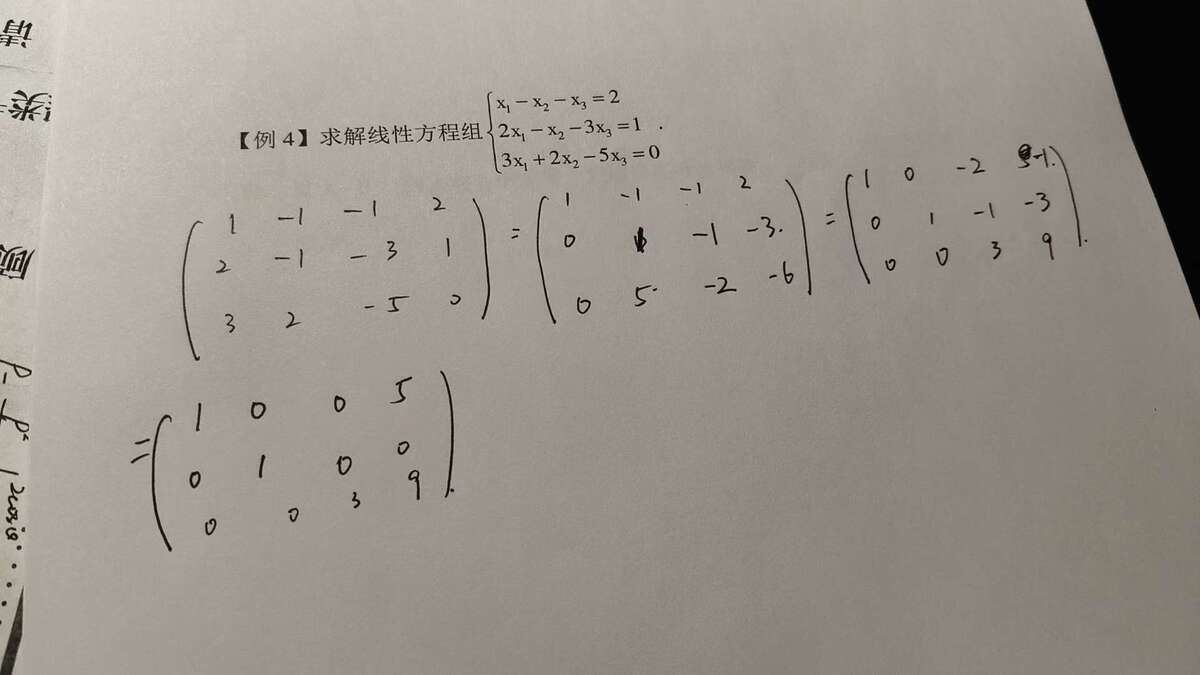 请
类
顾
【例 4】求解线性方程组
x₁ − x₂ − x₃ = 2
2x₁ − x₂ − 3x₃ = 1 .
3x₁ + 2x₂ − 5x₃ = 0
1 -1 -1 2
2 -1 -3 1
3 2 -5 0
=
1 -1 -1 2
0 1 -1 -3.
0 5. -2 -6
=
1 0 -2 -1.
0 1 -1 -3
0 0 3 9
=
1 0 0 5
0 1 0 0
0 0 3 9